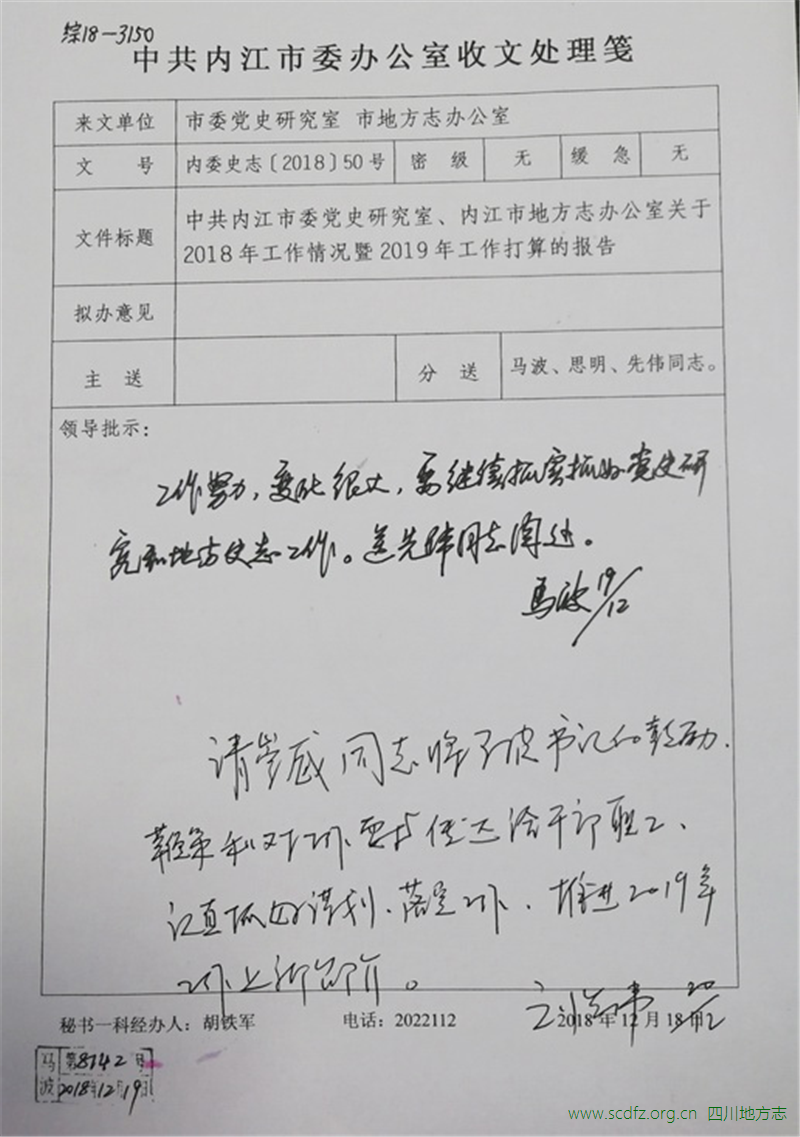 综18-3150
中共内江市委办公室收文处理笺
来文单位 市委党史研究室 市地方志办公室
文 号 内委史志〔2018〕50号 密 级 无 缓 急 无
文件标题 中共内江市委党史研究室、内江市地方志办公室关于
2018年工作情况暨2019年工作打算的报告
拟办意见
主 送 分 送 马波、思明、先伟同志。
领导批示:
工作努力,变化很大,要继续抓实抓好党史研
究和地方史志工作。送先伟同志阅处。
马波 19/12
请 同志将马波书记的鼓励、
鞭策和对工作要求传达给干部职工、
认真抓好谋划、落实工作、推进2019年
工作上新台阶。
20/12
秘书一科经办人: 胡铁军 电话: 2022112 2018年12月18日
马波 第8742号
2018年12月19日
www.scdfz.org.cn 四川地方志